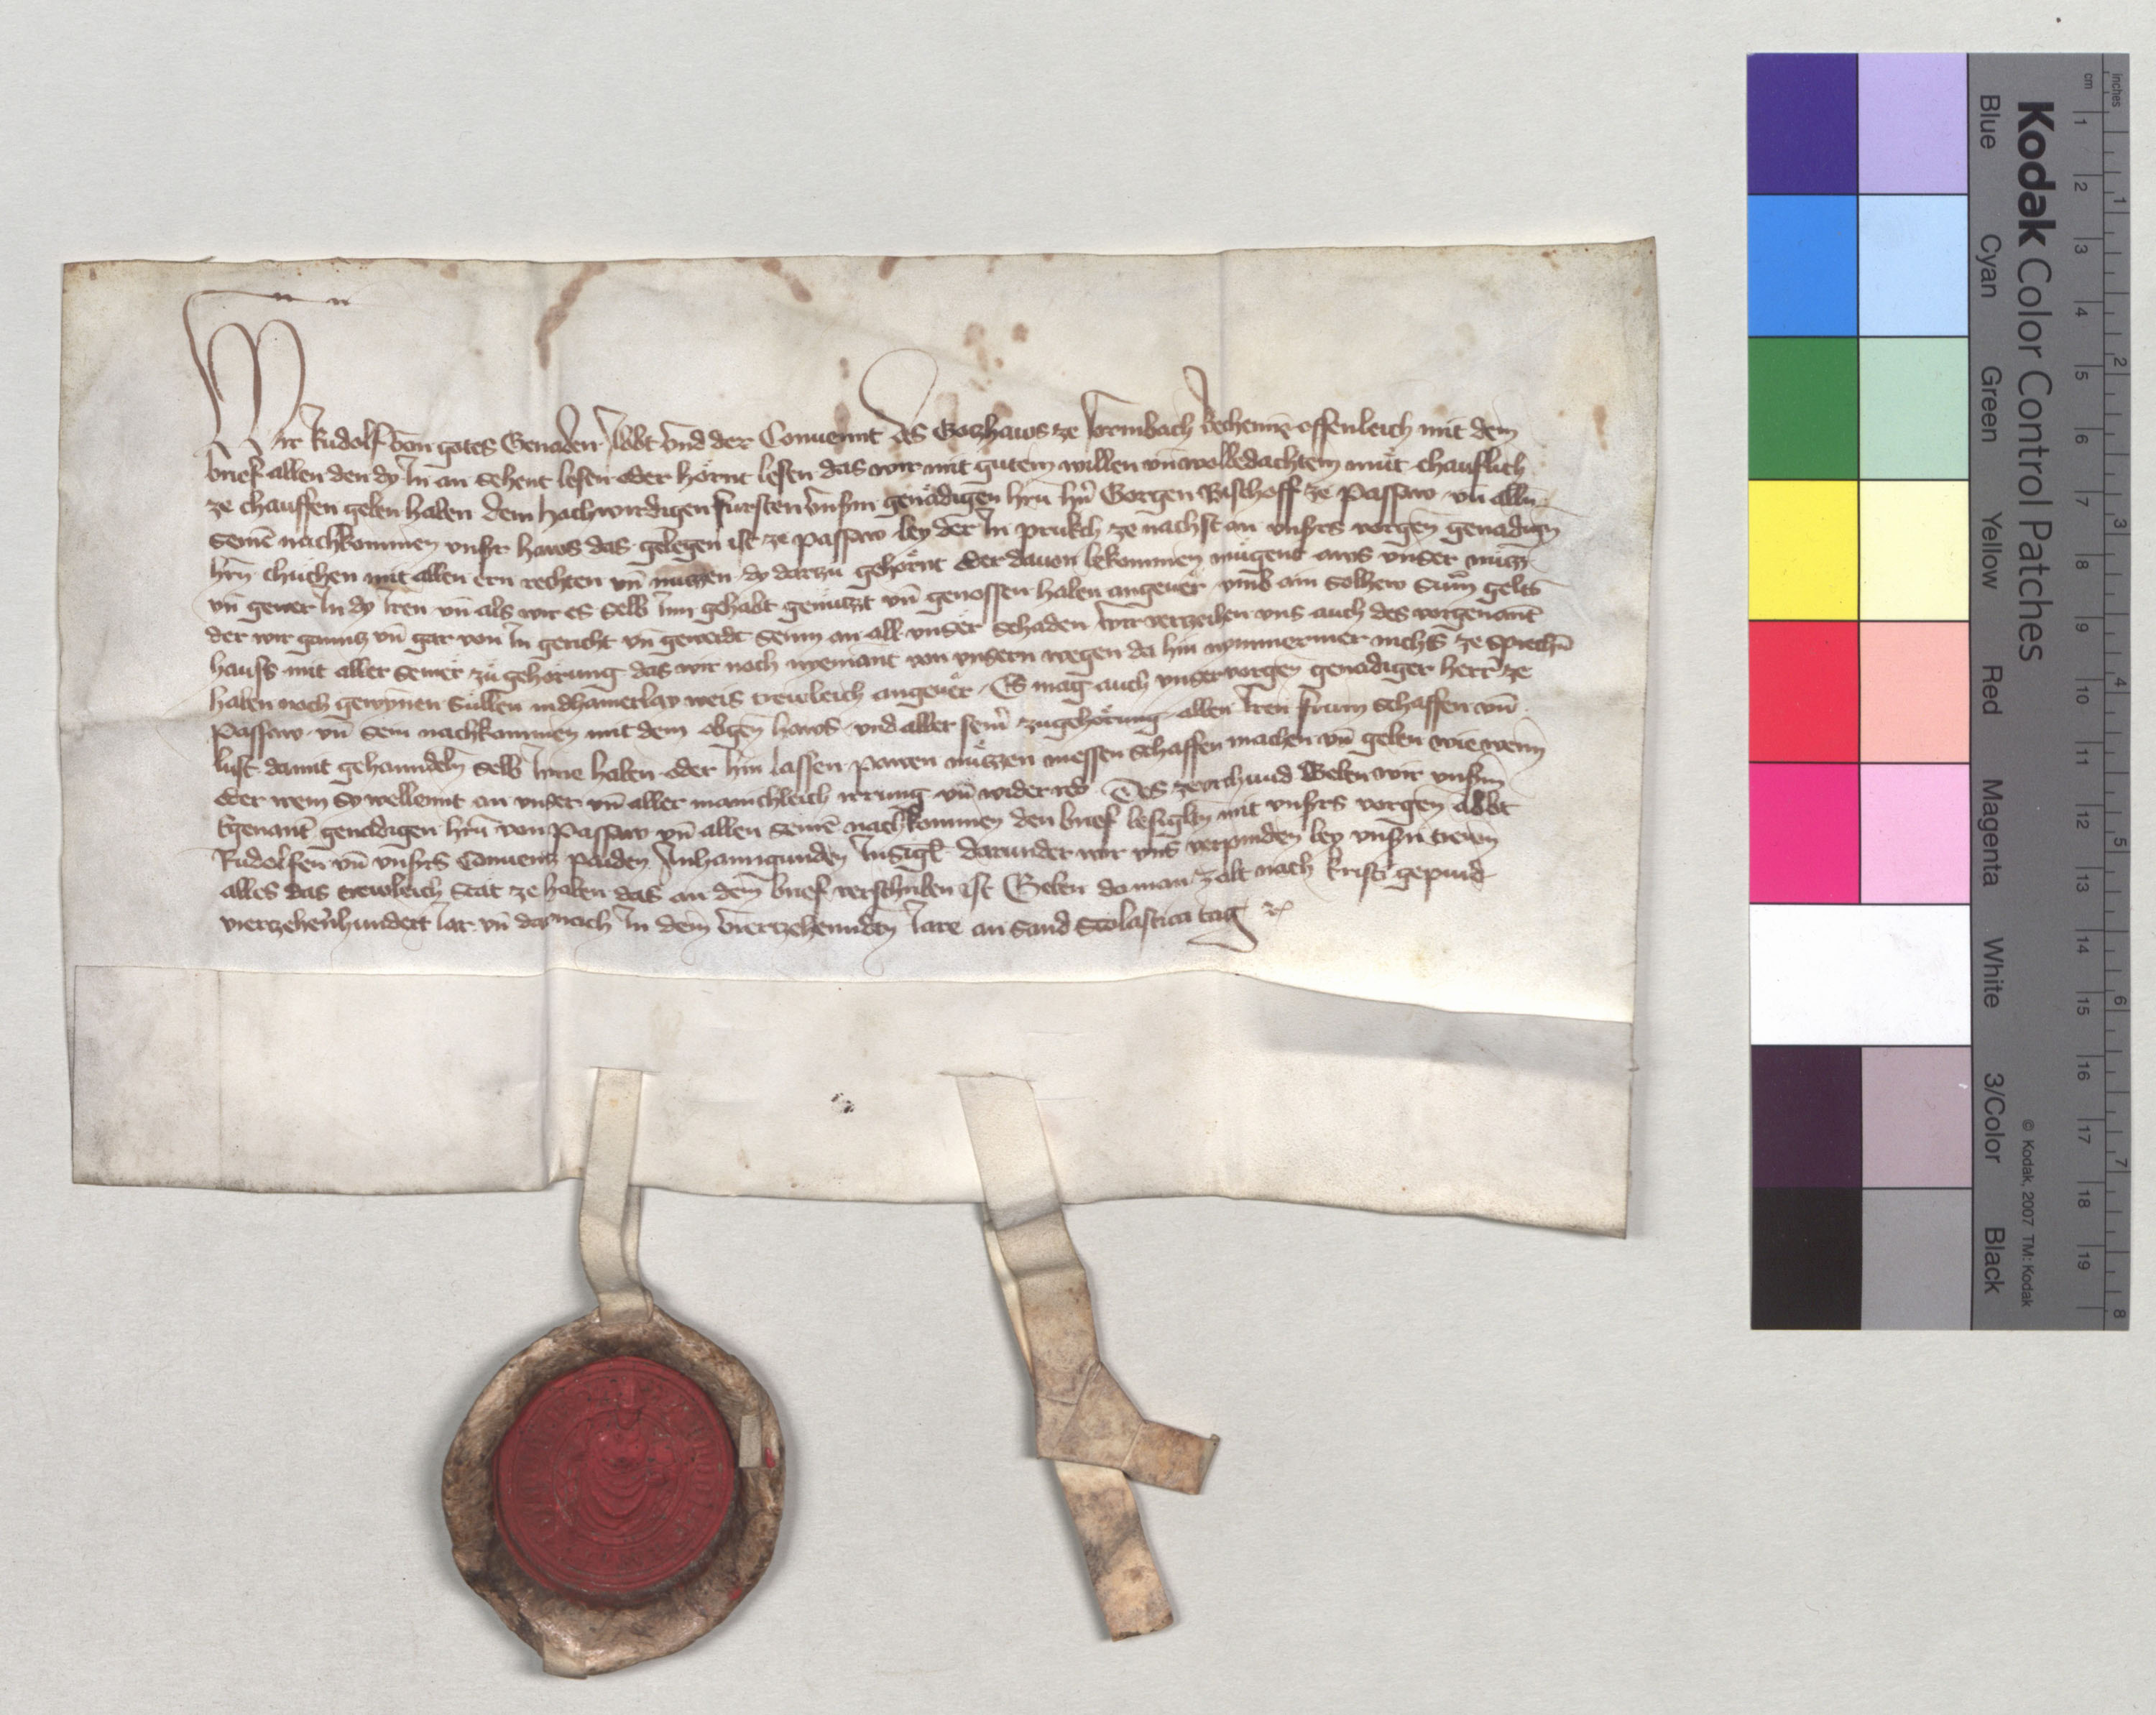 Wir Rudolf von gotes Genaden Abbt vnd der Conuennt des Gotzhaws ze Formbach Bechenn̄ offenleich mit dem
brief allen den dy In an sehent lesen oder hörnt lesen das wir mit gutem willen vn̄ wolbedachtem müt chauflich
ze chauffen geben haben dem hachwirdigen fürsten vnsm̄ genädigen hrn̄ hn̄ Gorgen Bischoff ze Passaw vn̄ alln̄
seinē nachkommen vnsr haws das gelegen ist ze passaw bey der In prukch ze nachst an vnsrs vorgen̄ genadign̄
hrn̄ chuchen mit allen ern rechten vn̄ nutzen dy darzu gehörnt oder dauon bekommen mügent aws vnser nutz
vn̄ gewer In dy Iren vn̄ als wir es selb Inn gehabt genützt vn̄ genossen haben angeuer vmb ain solhew Sum̄ gelts
der wir ganntz vn̄ gar von In gericht vn̄ gewerdt seinn an all vnser schaden Wir verzeihen vns auch des vorgenant̄
hauss mit aller seiner zügehörung das wir noch nyemant von vnsern wegen da hin nymmermer nichts ze sprechn̄
haben noch gewynnen süllen indhainerlay weis trewleich angeuer Es mag auch vnser vorgen̄ genadiger herr ze
Passaw vn̄ sein nachkommen mit dem obgen̄ haws vnd aller sein̄ zugehörung allen Iren frum schaffen vn̄
lust damit gehanndeln̄ selb Inne haben oder hin lassen pawen nützen niessen schaffen machen vn̄ geben wie wenn
oder wem sy wellennt an vnser vn̄ aller manichleich irrung vn̄ wider red Des ze vrchund Geben wir vnsm̄
Egenant̄ genädigen hrn̄ von Passaw vn̄ allen seinē nachkommen den brief besigltn̄ mit vnsrs vorgen̄ abbt
Rudolfen vn̄ vnsrs Conuentz paiden Anhanngunden Insigl̄ darunder wir vns verpinden bey vnsn̄ trewn
alles das trewleich stät ze haben das an dem̄ brief verschriben ist Geben da man zalt nach kristi gepurd
vierzehenhundert Iar vn̄ darnach In dem̄ vierzehenndn̄ Iare an Sand Scolastica tag etc
Kodak Color Control Patches
Blue Cyan Green Yellow Red Magenta White 3/Color Black
© Kodak, 2007 TM: Kodak
inches 1 2 3 4 5 6 7 8
cm 1 2 3 4 5 6 7 8 9 10 11 12 13 14 15 16 17 18 19